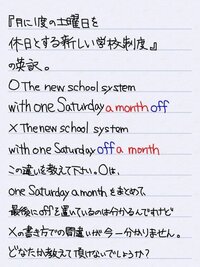 『月に1度の土曜日を
休日とする新しい学校制度』
の英訳。
○The new school system
with one Saturday a month off
×The new school system
with one Saturday off a month
この違いを教えて下さい。○は、
one Saturday a monthをまとめて、
最後にoffを置いているのは分かるんですけど
×の書き方での間違いが今一分かりません。
どなたか教えて頂けないでしょうか?